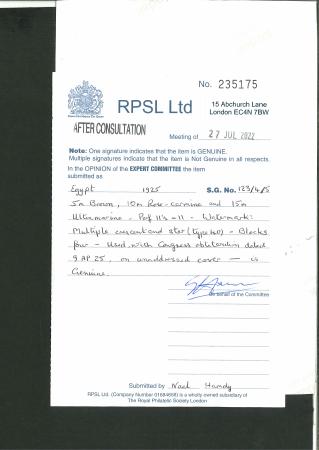 No. 235175
RPSL Ltd
15 Abchurch Lane
London EC4N 7BW
AFTER CONSULTATION
Meeting of 27 JUL 2022
Note: One signature indicates that the item is GENUINE.
Multiple signatures indicate that the item is Not Genuine in all respects.
In the OPINION of the EXPERT COMMITTEE the item
submitted as
Egypt 1925 S.G. No. 123/4/5
5m Brown, 10m Rose-carmine and 15m
Ultramarine - Perf 11½ x 11 - Watermark:
Multiple crescent and star (type 40) - Blocks
four - Used with Congress obliteration dated
9 AP 25, on unaddressed cover — is
Genuine.
On behalf of the Committee
Submitted by Hamdy
RPSL Ltd. (Company Number 01684666) is a wholly-owned subsidiary of
The Royal Philatelic Society London